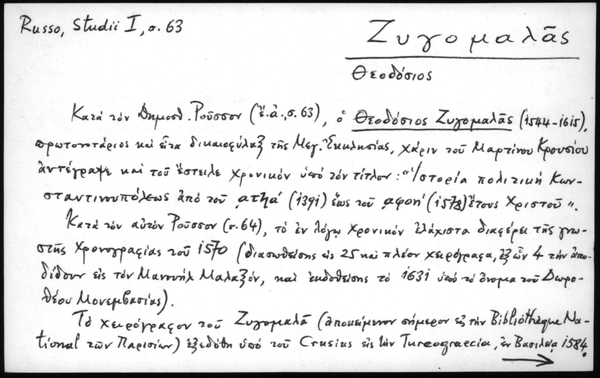 Russo, Studii I, σ. 63
Ζυγομαλᾶς
Θεοδόσιος
Κατὰ τὸν Δημοσθ. Ροῦσσον (ἔ.ἀ., σ. 63), ὁ Θεοδόσιος Ζυγομαλᾶς (1544-1615),
πρωτονοτάριος καὶ εἶτα δικαιοφύλαξ τῆς Μεγ. Ἐκκλησίας, χάριν τοῦ Μαρτίνου Κρουσίου
ἀντέγραψε καὶ τοῦ ἔστειλε χρονικὸν ὑπὸ τὸν τίτλον: "Ἱστορία πολιτικὴ Κων-
σταντινουπόλεως ἀπὸ τοῦ ατϟα' (1391) ἕως τοῦ αφοη' (1578) ἔτους Χριστοῦ".
Κατὰ τὸν αὐτὸν Ροῦσσον (σ. 64), τὸ ἐν λόγῳ χρονικὸν ἐλάχιστα διαφέρει τῆς γνω-
στῆς χρονογραφίας τοῦ 1570 (διασωθείσης εἰς 25 καὶ πλέον χειρόγραφα, ἐξ ὧν 4 τὴν ἀπο-
δίδουν εἰς τὸν Μανουὴλ Μαλαξόν, καὶ ἐκδοθείσης τὸ 1631 ὑπὸ τὸ ὄνομα τοῦ Δωρο-
θέου Μονεμβασίας).
Τὸ χειρόγραφον τοῦ Ζυγομαλᾶ (ἀποκείμενον σήμερον εἰς τὴν Bibliothèque Na-
tional τῶν Παρισίων) ἐξεδόθη ὑπὸ τοῦ Crusius εἰς τὴν Turcograecia, ἐν Βασιλείᾳ 1584.